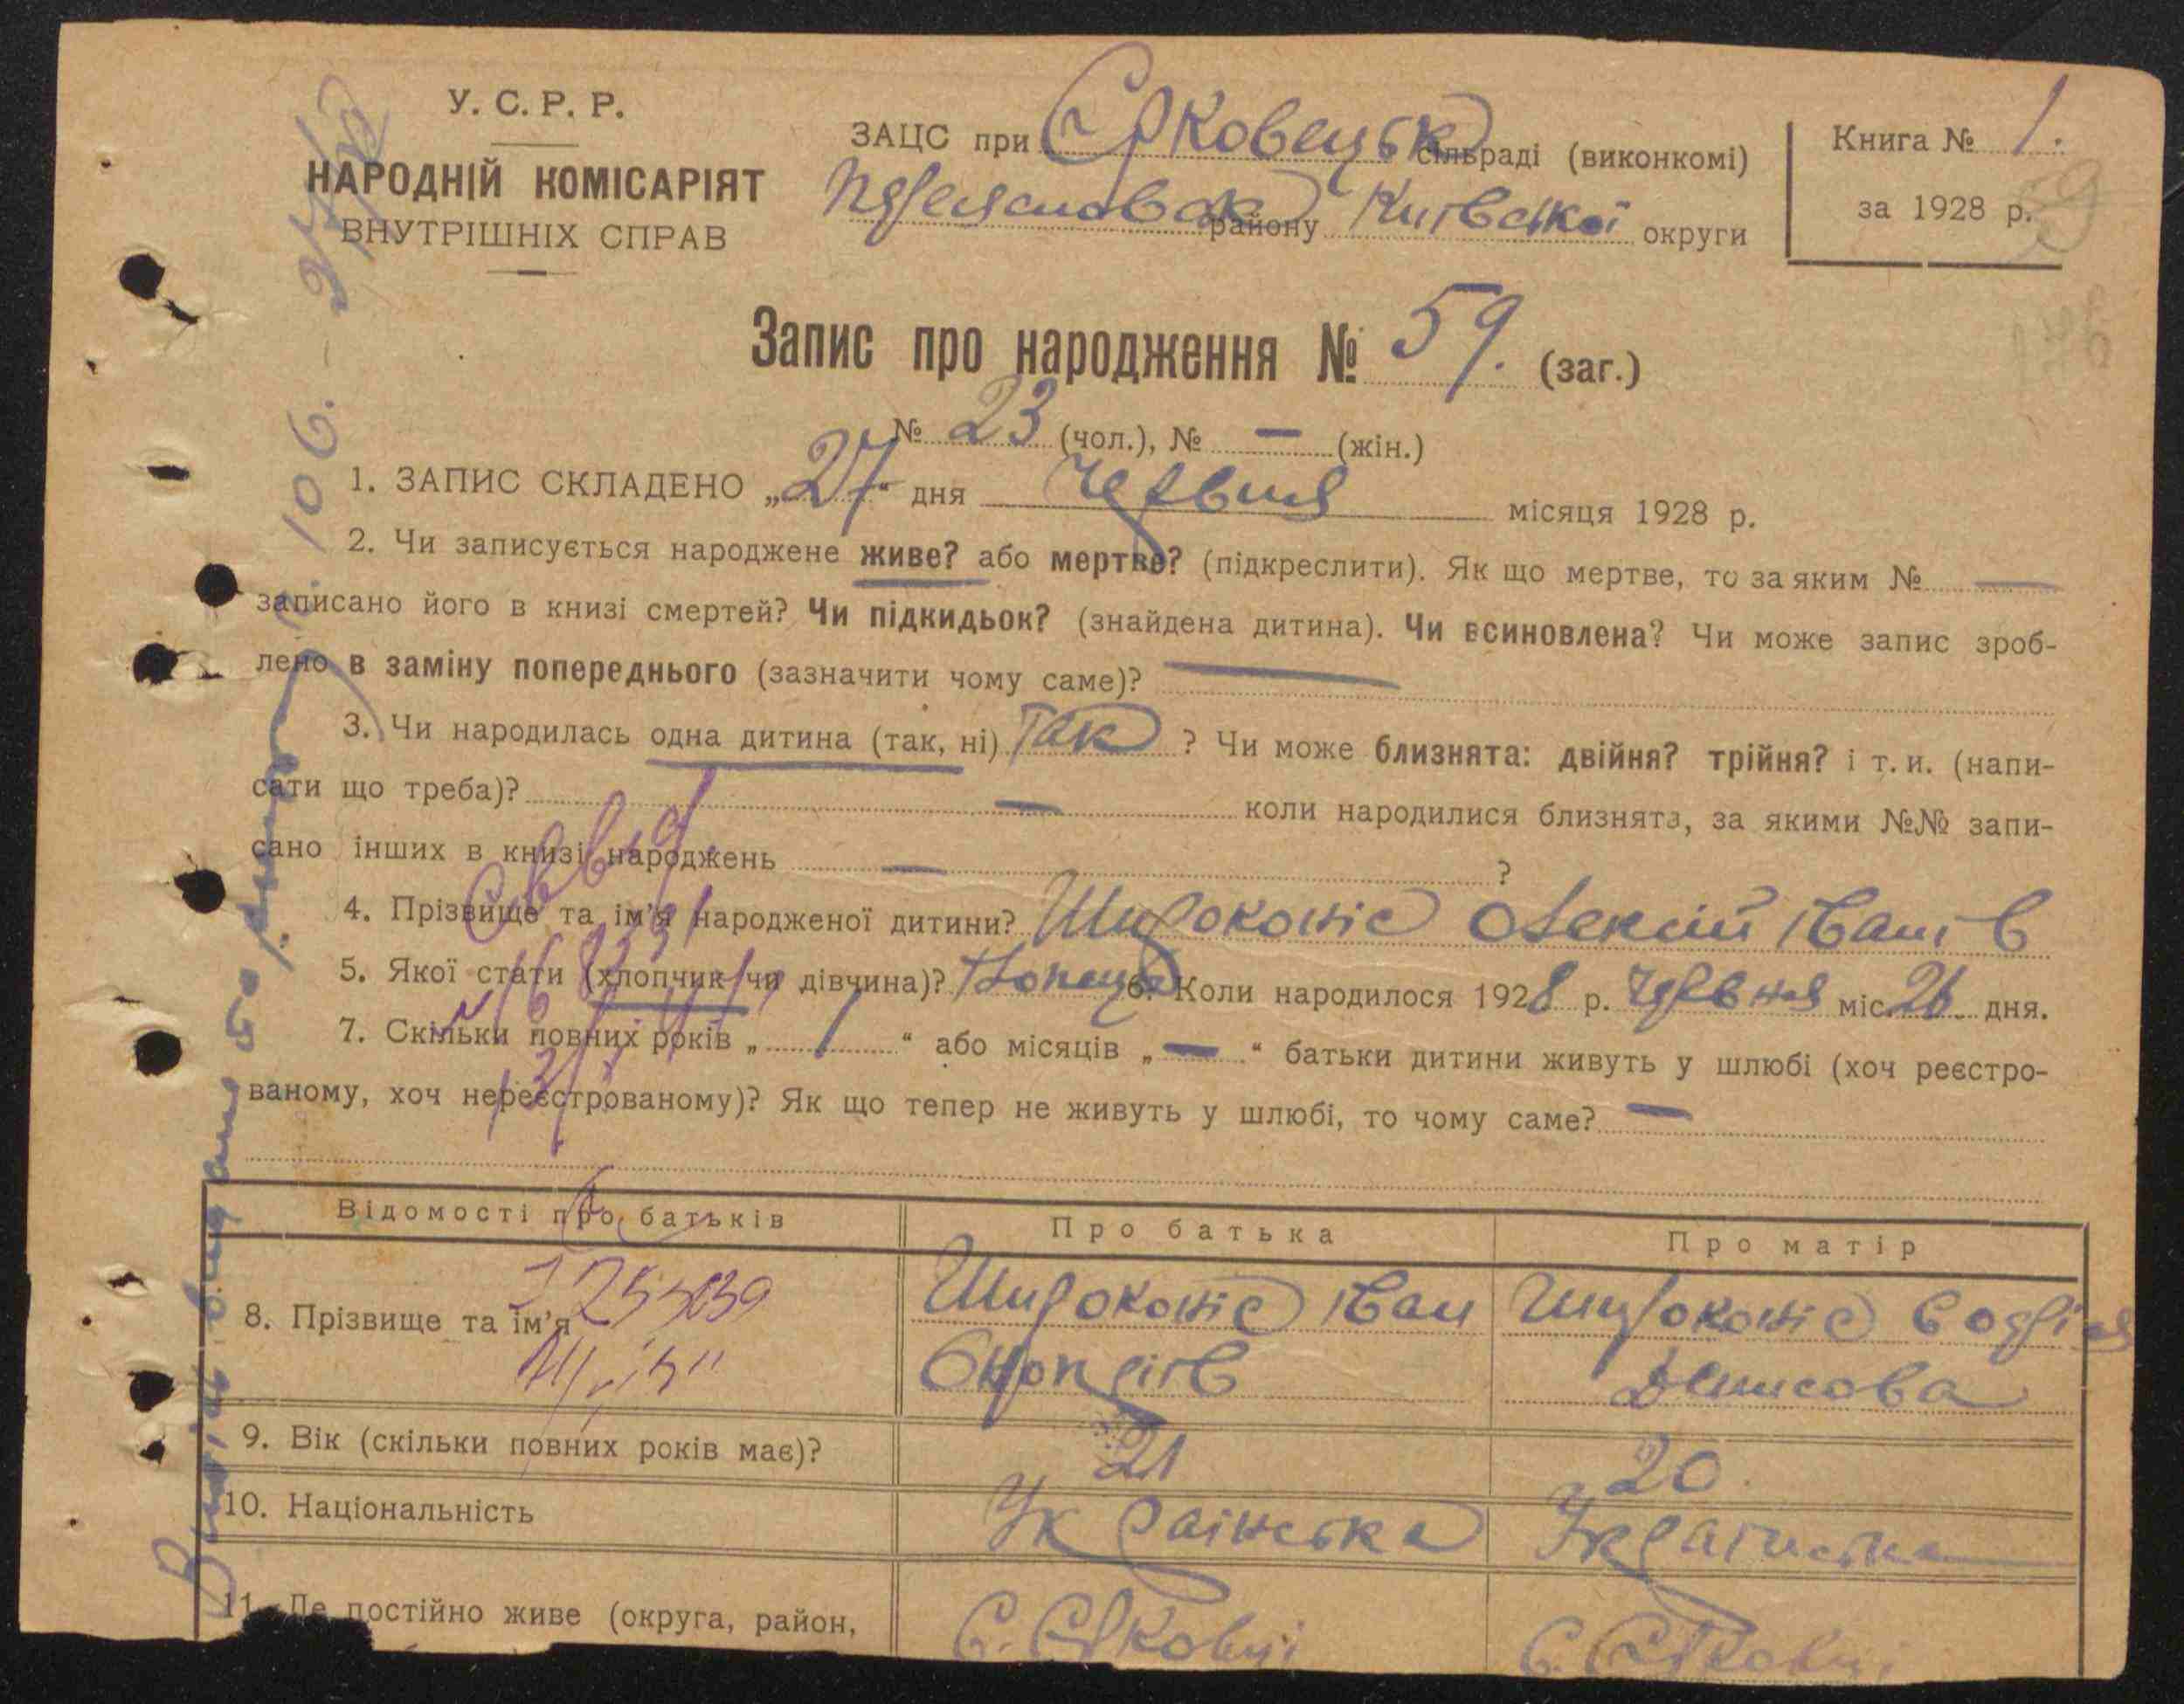 У. С. Р. Р.
НАРОДНІЙ КОМІСАРІЯТ
ВНУТРІШНІХ СПРАВ
ЗАЦС при Єрковецьк сільраді (виконкомі)
району Київської округи
Книга № 1.
за 1928 р.
59
Запис про народження № 59. (заг.)
№ 23 (чол.), № — (жін.)
1. ЗАПИС СКЛАДЕНО „27“ дня червня місяця 1928 р.
2. Чи записується народжене живе? або мертве? (підкреслити). Як що мертве, то за яким № —
записано його в книзі смертей? Чи підкидьок? (знайдена дитина). Чи всиновлена? Чи може запис зроб-
лено в заміну попереднього (зазначити чому саме)? —
3. Чи народилась одна дитина (так, ні) Так ? Чи може близнята: двійня? трійня? і т. и. (напи-
сати що треба)? — коли народилися близнята, за якими №№ запи-
сано інших в книзі народжень — ?
4. Прізвище та ім'я народженої дитини? Широконіс Олексій Іванів
5. Якої стати (хлопчик чи дівчина)? Хлопець 6. Коли народилося 1928 р. червня міс. 26 дня.
7. Скільки повних років „ 1 “ або місяців „ — “ батьки дитини живуть у шлюбі (хоч реєстро-
ваному, хоч нереєстрованому)? Як що тепер не живуть у шлюбі, то чому саме? —
Відомості про батьків Про батька Про матір
8. Прізвище та ім'я Широконіс Іван Широконіс Єодосія
Денисова
9. Вік (скільки повних років має)? 21 20
10. Національність Українська Українська
11. Де постійно живе (округа, район, С. Єрковці С. Єрковці